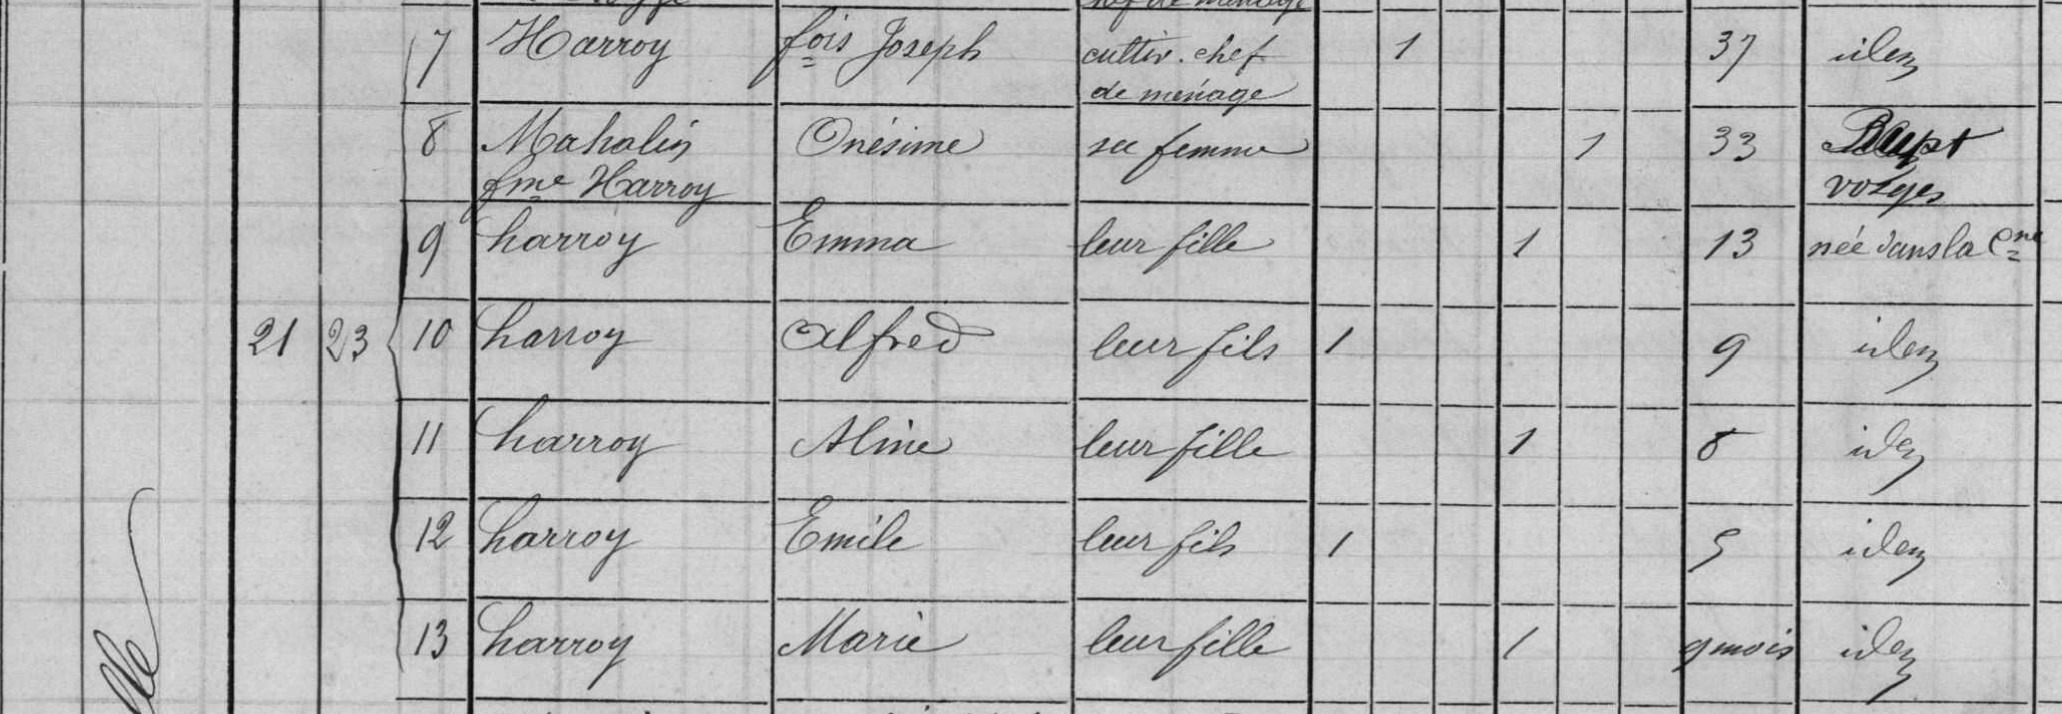 chef de ménage
7 Harroy fois Joseph cultiv. chef 1 37 idem
de ménage
8 Mahalin Onésime sa femme 1 33
fme Harroy vosges
9 harroy Emma leur fille 1 13 née dans la Cne
21 23 10 harroy Alfred leur fils 1 9 idem
11 harroy Aline leur fille 1 8 idem
12 harroy Emile leur fils 1 5 idem
13 harroy Marie leur fille 1 9 mois idem